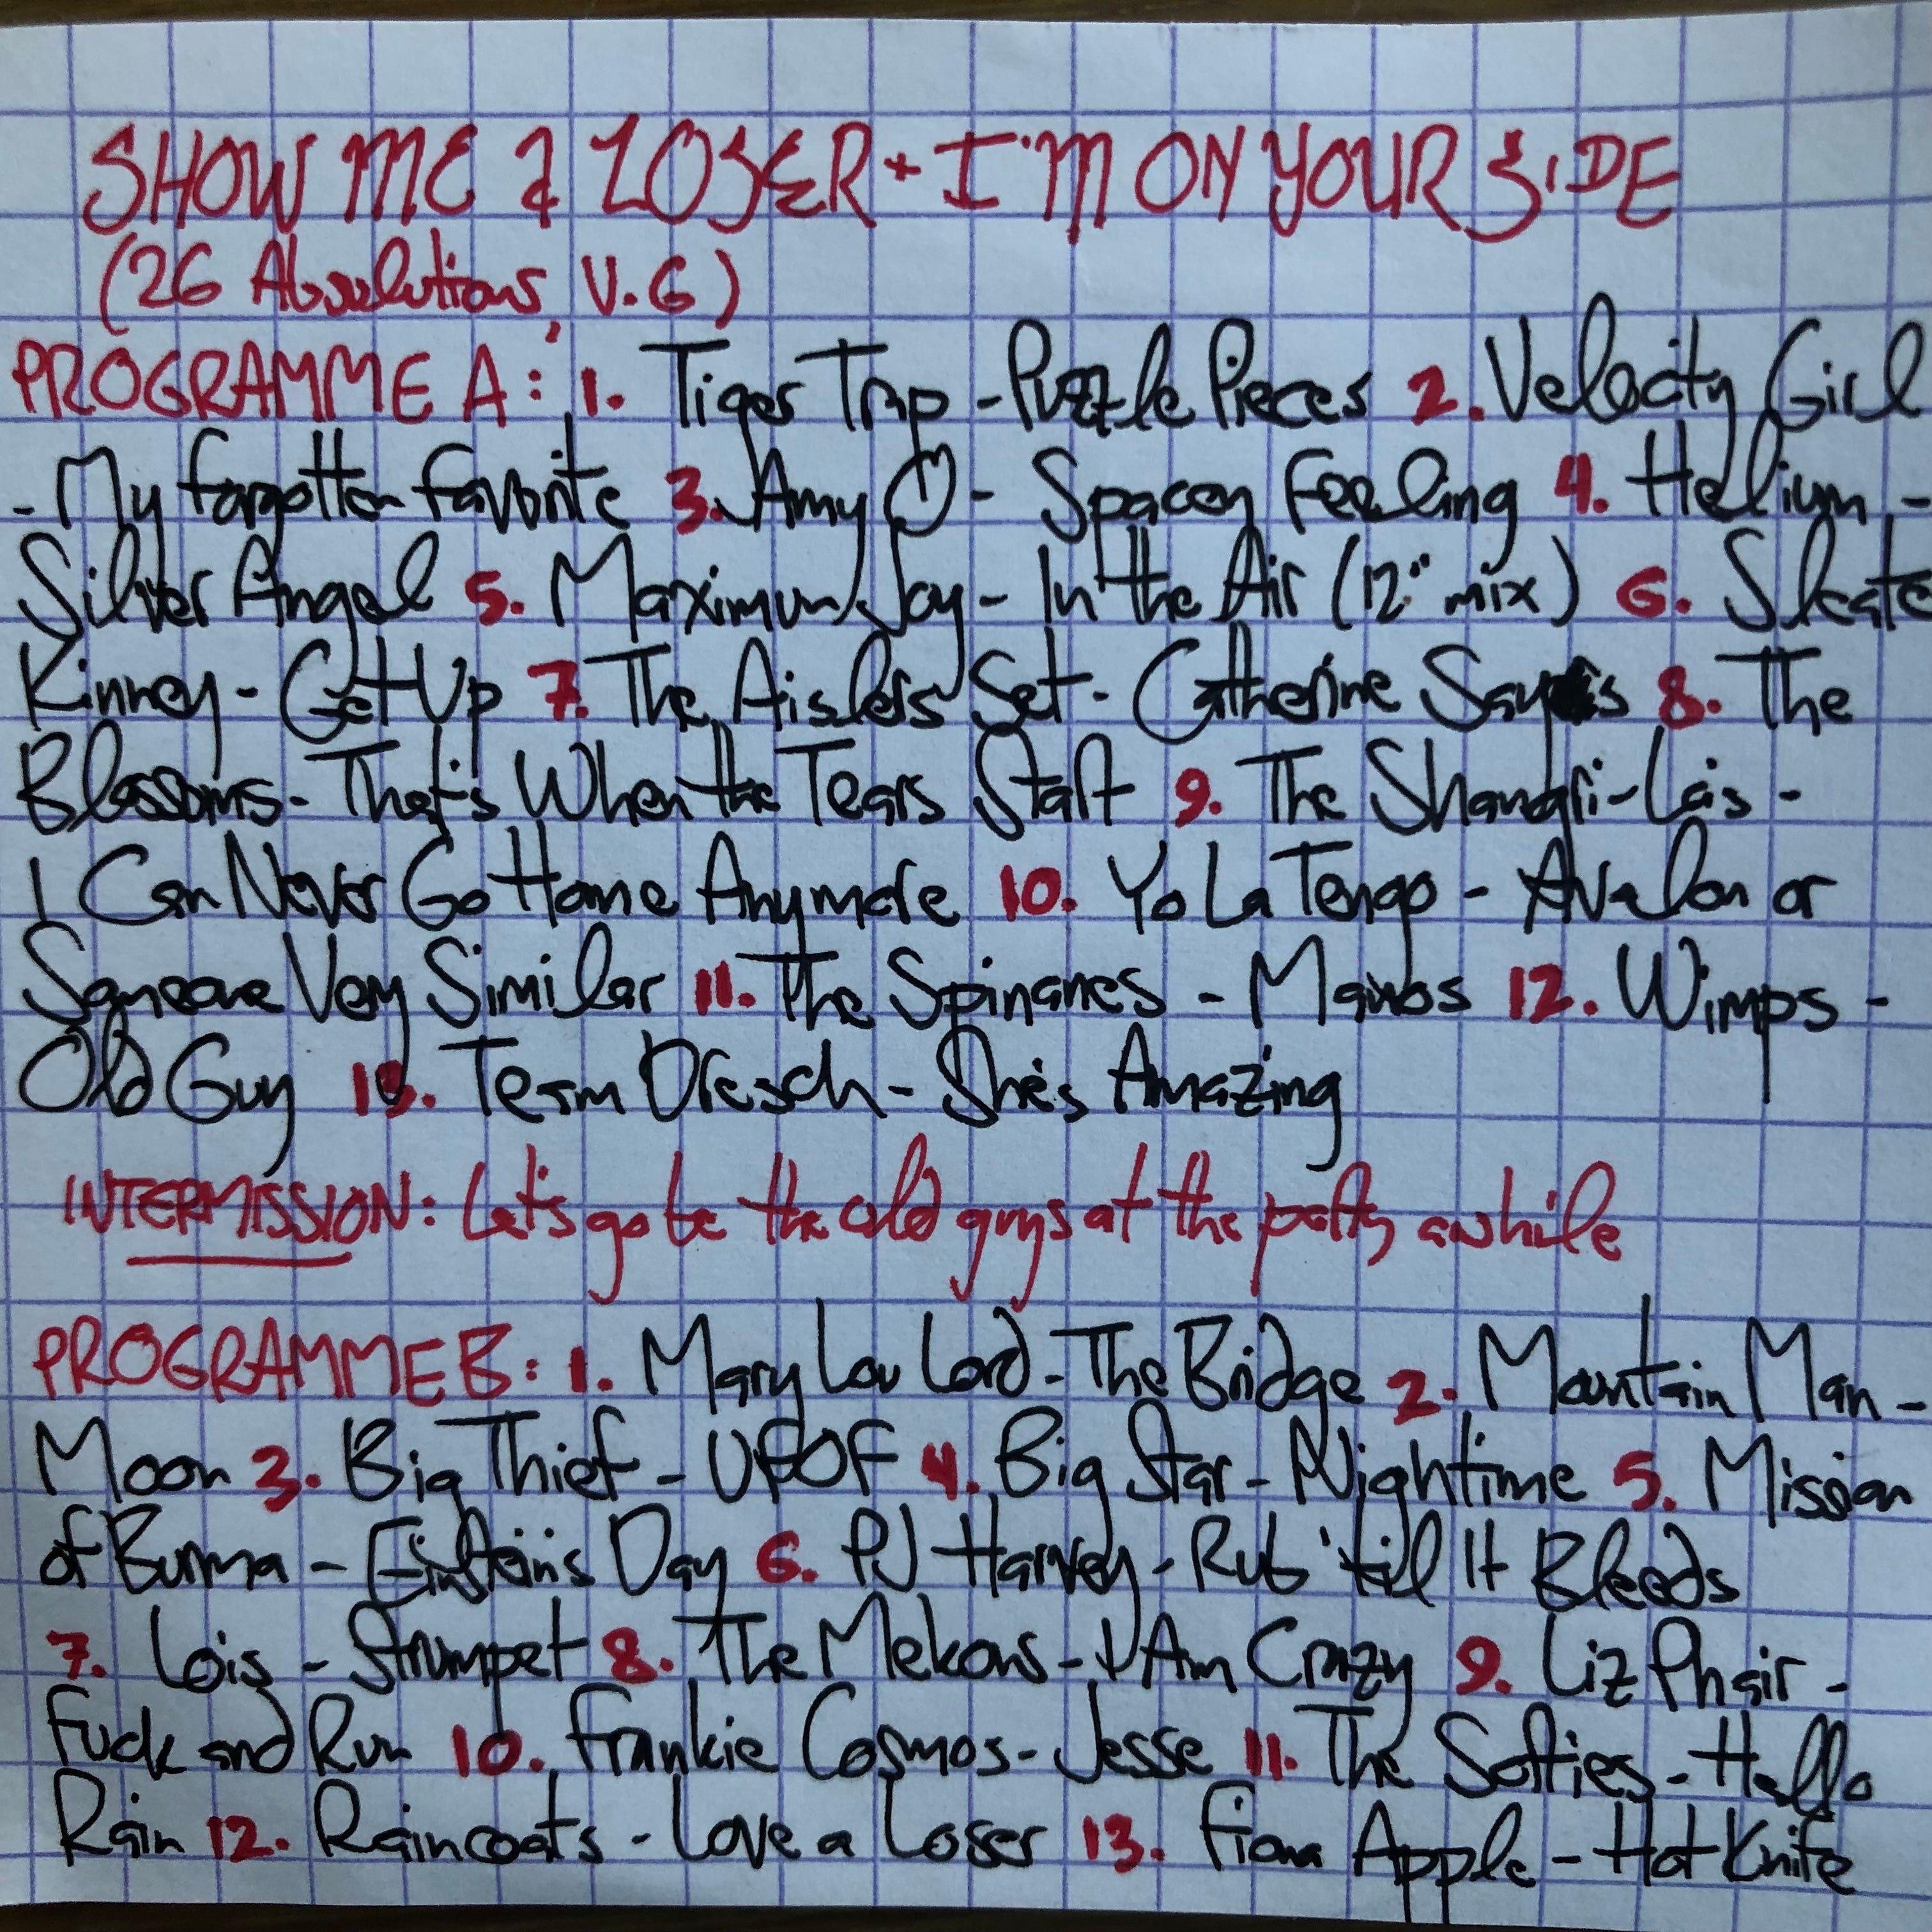 SHOW ME A LOSER + I'M ON YOUR SIDE
(26 Absolutions, V. 6)
PROGRAMME A: 1. Tiger Trap - Puzzle Pieces 2. Velocity Girl
- My Forgotten Favorite 3. Amy O - Spacey Feeling 4. Helium -
Silver Angel 5. Maximum Joy - In the Air (12" mix) 6. Sleater
Kinney - Get Up 7. The Aislers Set - Catherine Says 8. The
Blossoms - That's When the Tears Start 9. The Shangri-Las -
I Can Never Go Home Anymore 10. Yo La Tengo - Avalon or
Someone Very Similar 11. The Spinanes - Manos 12. Wimps -
Old Guy 13. Team Dresch - She's Amazing
INTERMISSION: Let's go be the old guys at the party awhile
PROGRAMME B: 1. Mary Lou Lord - The Bridge 2. Mountain Man -
Moon 3. Big Thief - UFOF 4. Big Star - Nightime 5. Mission
of Burma - Einstein's Day 6. PJ Harvey - Rub 'til It Bleeds
7. Lois - Strumpet 8. The Mekons - I Am Crazy 9. Liz Phair -
Fuck and Run 10. Frankie Cosmos - Jesse 11. The Softies - Hello
Rain 12. Raincoats - Love a Loser 13. Fiona Apple - Hot Knife